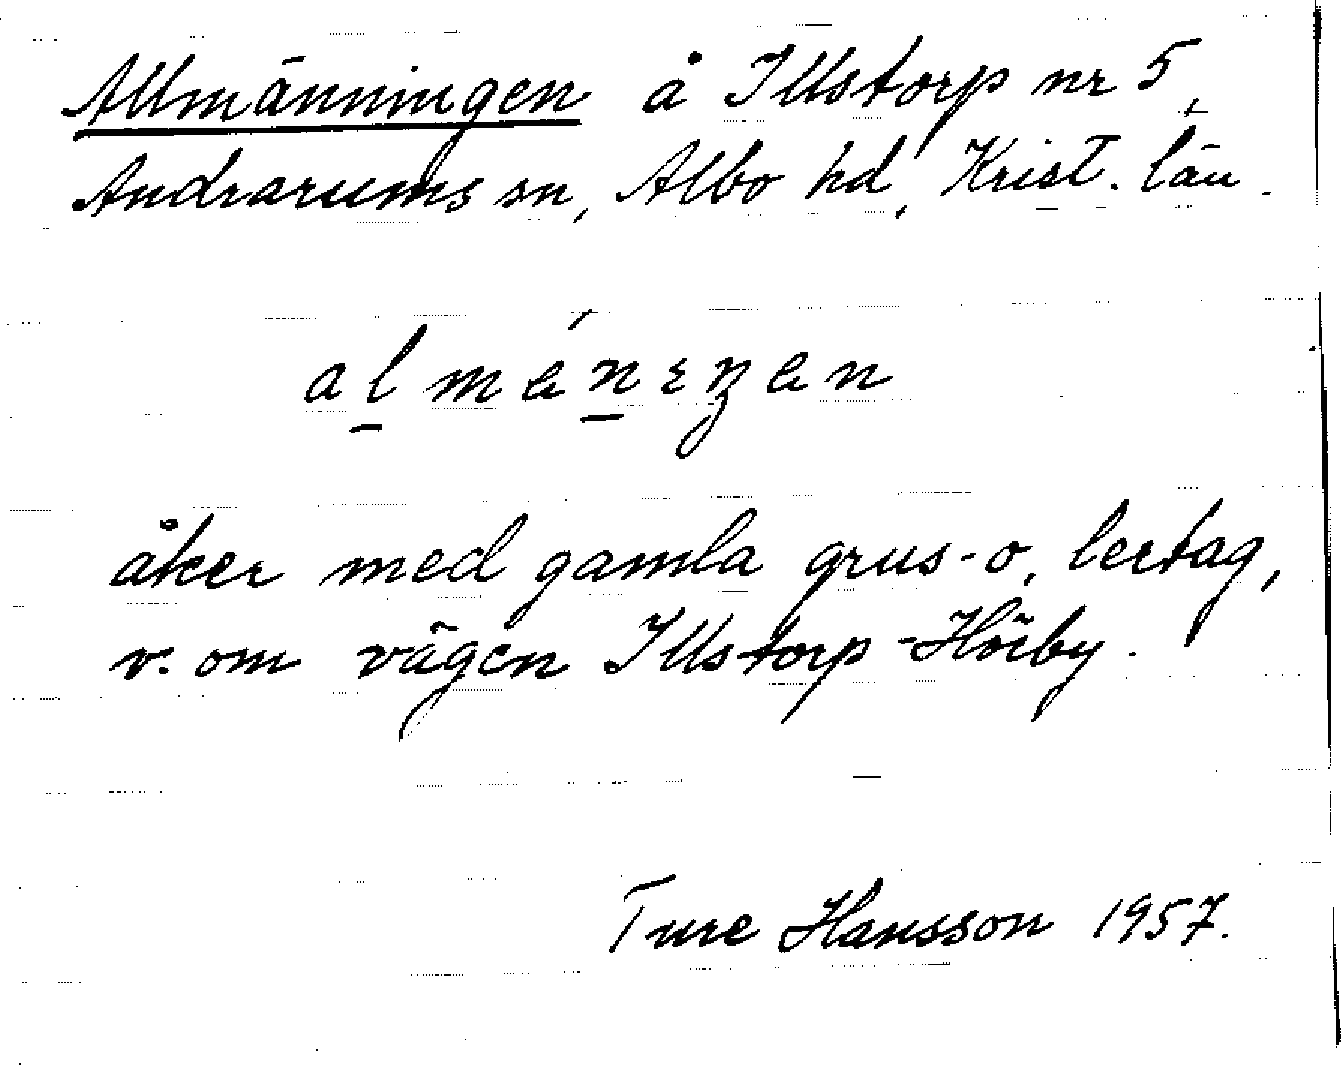 Allmänningen å Illstorp nr 5,
Andrarums sn, Albo hd, Krist. län.
åker med gamla grus- o. lertag,
v. om vägen Illstorp-Hörby.
Ture Hansson 1957.